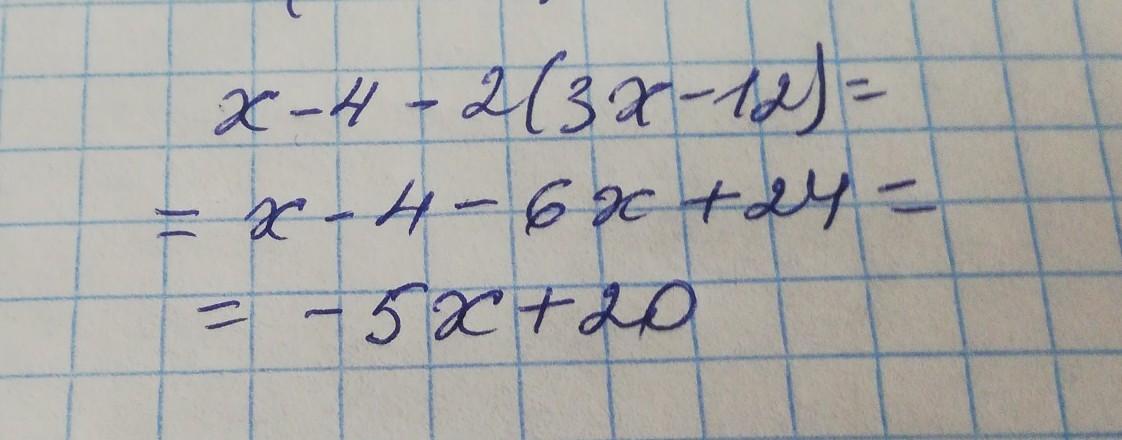 x - 4 - 2(3x - 12) =
= x - 4 - 6x + 24 =
= - 5x + 20